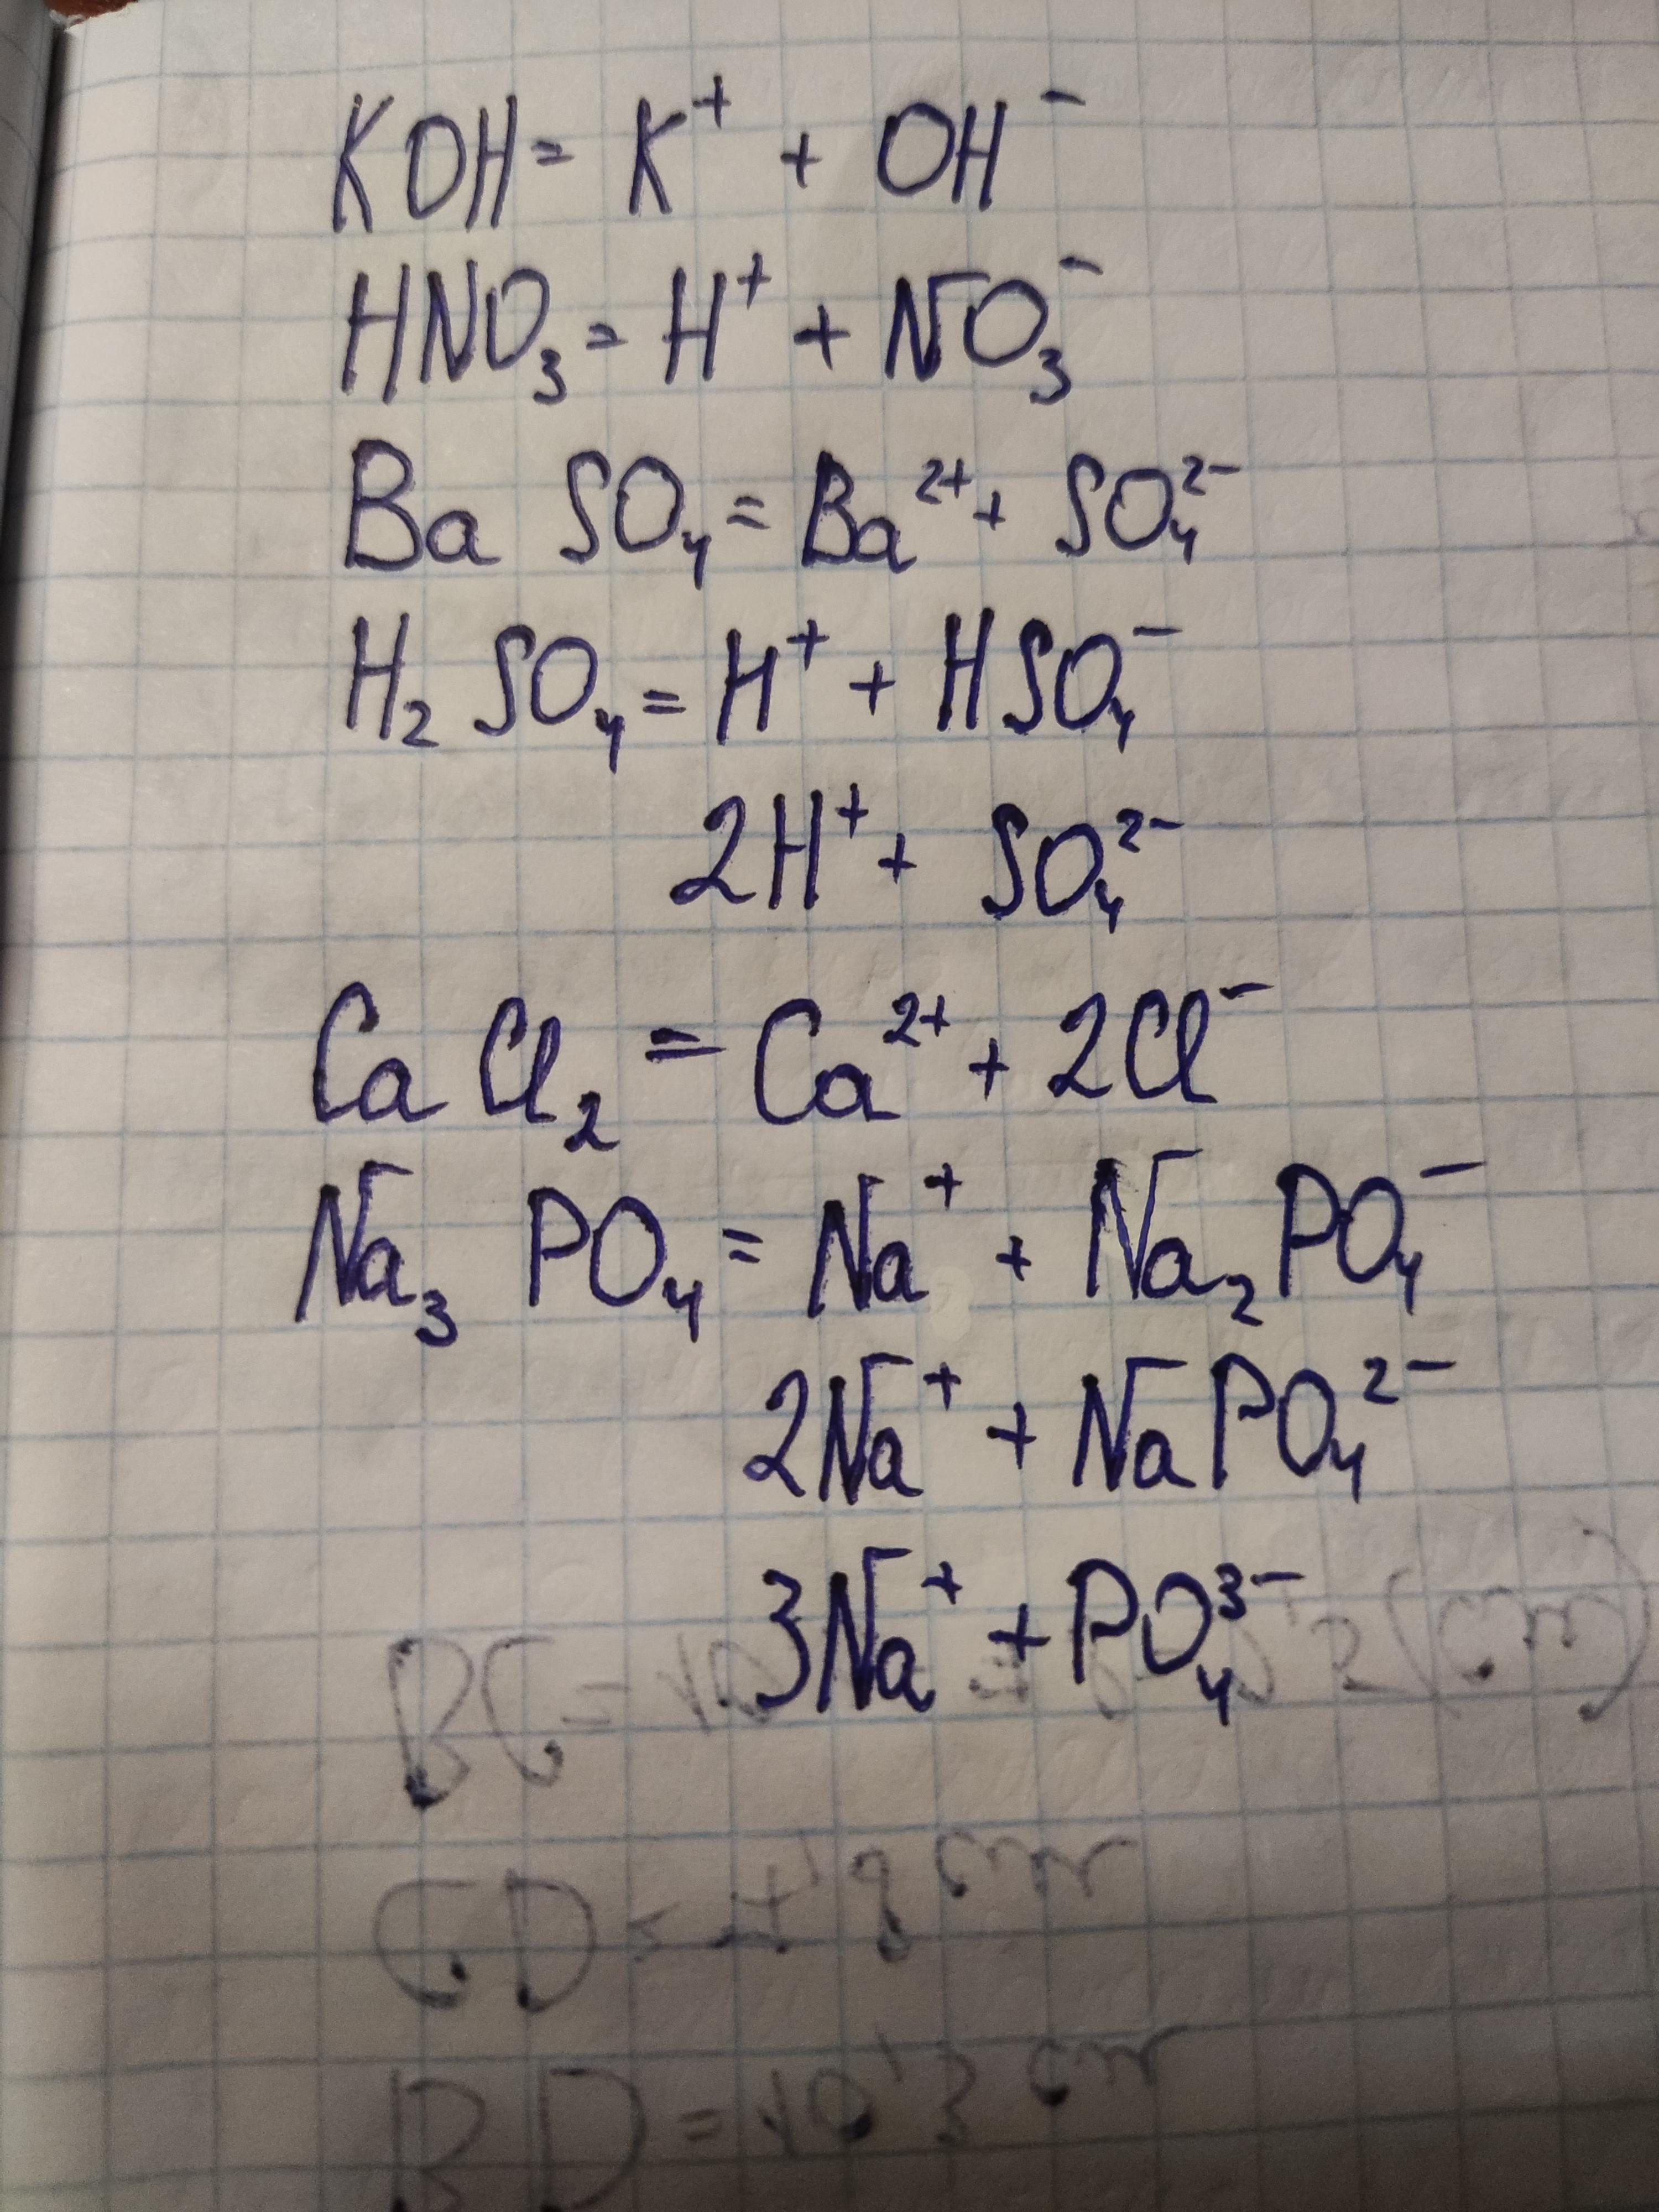 KOH = K⁺ + OH⁻
HNO₃ = H⁺ + NO₃⁻
BaSO₄ = Ba²⁺ + SO₄²⁻
H₂SO₄ = H⁺ + HSO₄⁻
2H⁺ + SO₄²⁻
CaCl₂ = Ca²⁺ + 2Cl⁻
Na₃PO₄ = Na⁺ + Na₂PO₄⁻
2Na⁺ + NaPO₄²⁻
3Na⁺ + PO₄³⁻
BC =
CD =
BD = 10'3 cm